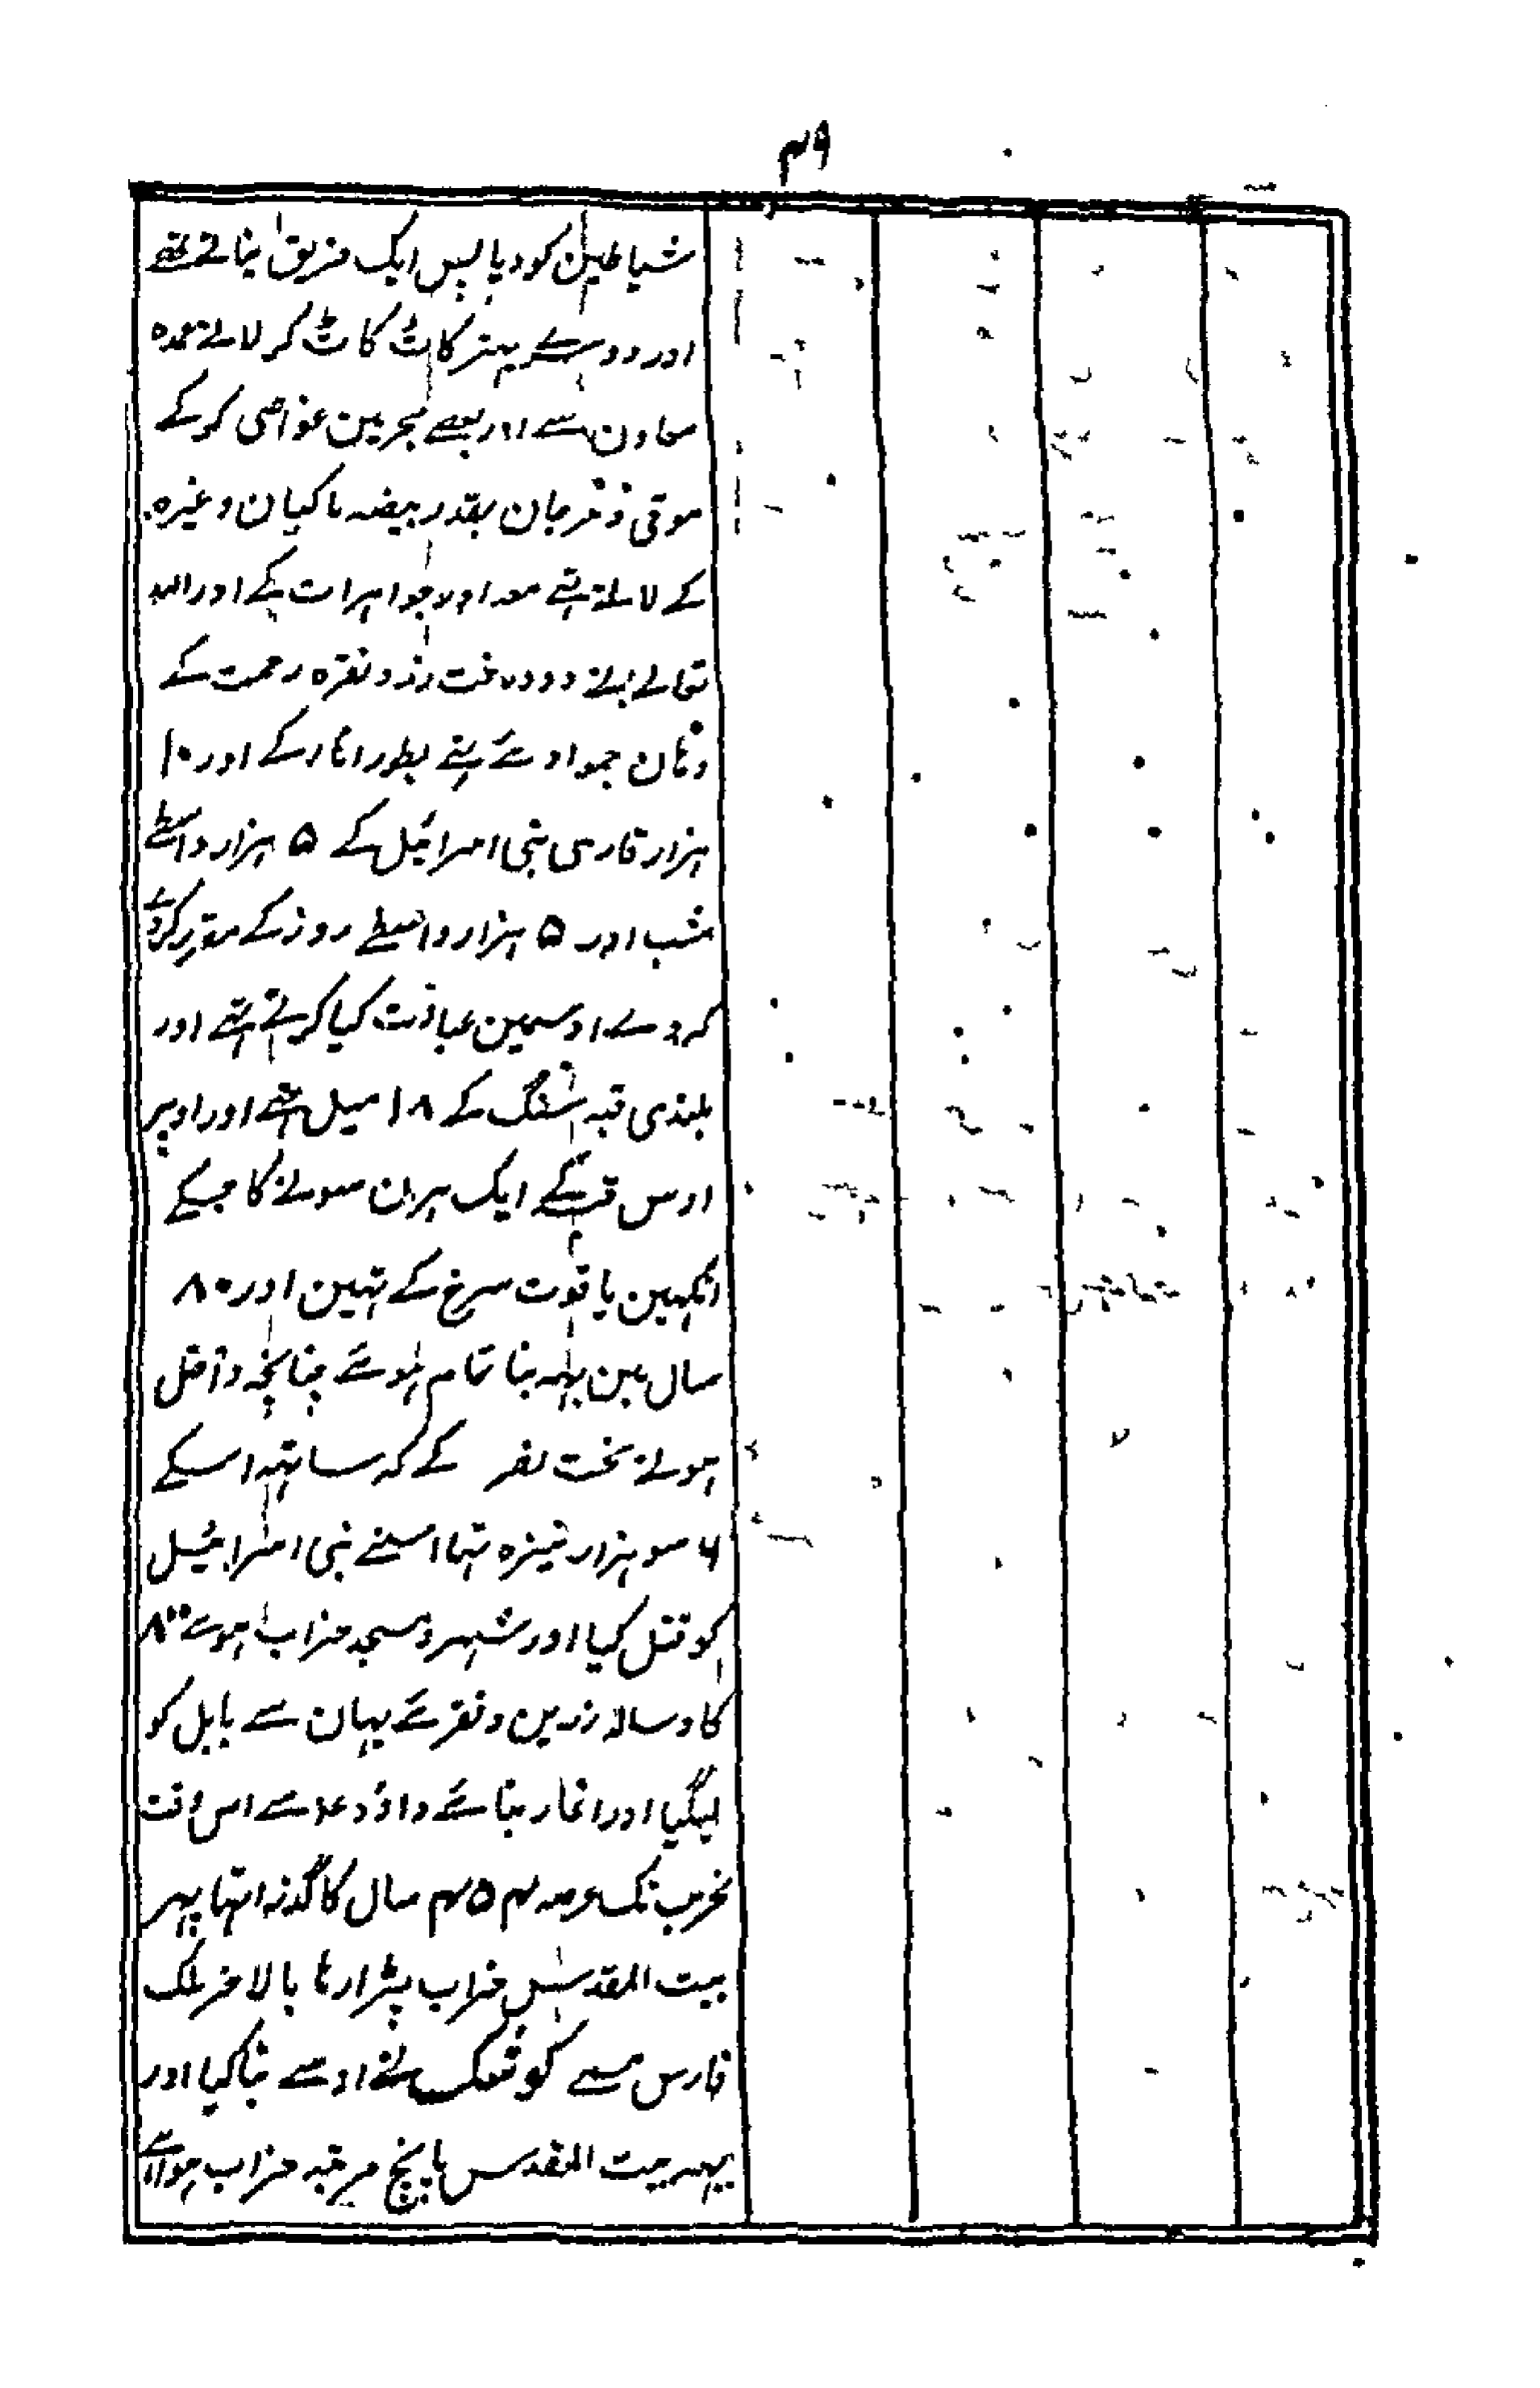 ۴۹
شیاطین کو دیا پس ایک فریق بناتے تھے
اور دوسرے پہتر کاٹ کاٹ کر لاتے عمدہ
معادن سے اور بعضے بحر مین غواصی کر کے
موتی و مرجان بقدر بیضہ ماکیان وغیرہ
کے لاتے تہے معہ اور جواہرات کے اور اللہ
تعالے نے دو درخت زر و نقرہ رحمت کے
وہان جموا دئے تہے بطور انار کے اور ۱۰
ہزار قاری بنی اسرائیل کے ۵ ہزار واسطے
شب اور ۵ ہزار واسطے روز کے مقرر کردئے
کہ وے اوسمین عبادت کیا کرتے تہے اور
بلندی قبہ سنگ کے ۱۸ میل تہے اور اوپر
اوس قبہ کے ایک ہرن سونے کا جسکے
انکہین یاقوت سرخ کے تہین اور ۸۰
سال مین یہہ بنا تمام ہوئے چنانچہ داخل
ہونے بخت نصر کے کہ ساتہہ اسکے
۶ سو ہزار نیزہ تہا اسنے بنی اسرائیل
کو قتل کیا اور شہر و مسجد خراب ہوے ۸۰۰
کا و سالہ زرین و نقرے یہان سے بابل کو
لیگیا اور انار بنائے داؤد ع سے اس وقت
تخریب تک عرصہ ۴۵۴ سال کا گذرا تہا پہر
بیت المقدس خراب پڑا رہا بالاخر ملک
فارس مسمے کوشک نے اوسے بنا کیا اور
یہہ بیت المقدس پانچ مرتبہ خراب ہوا